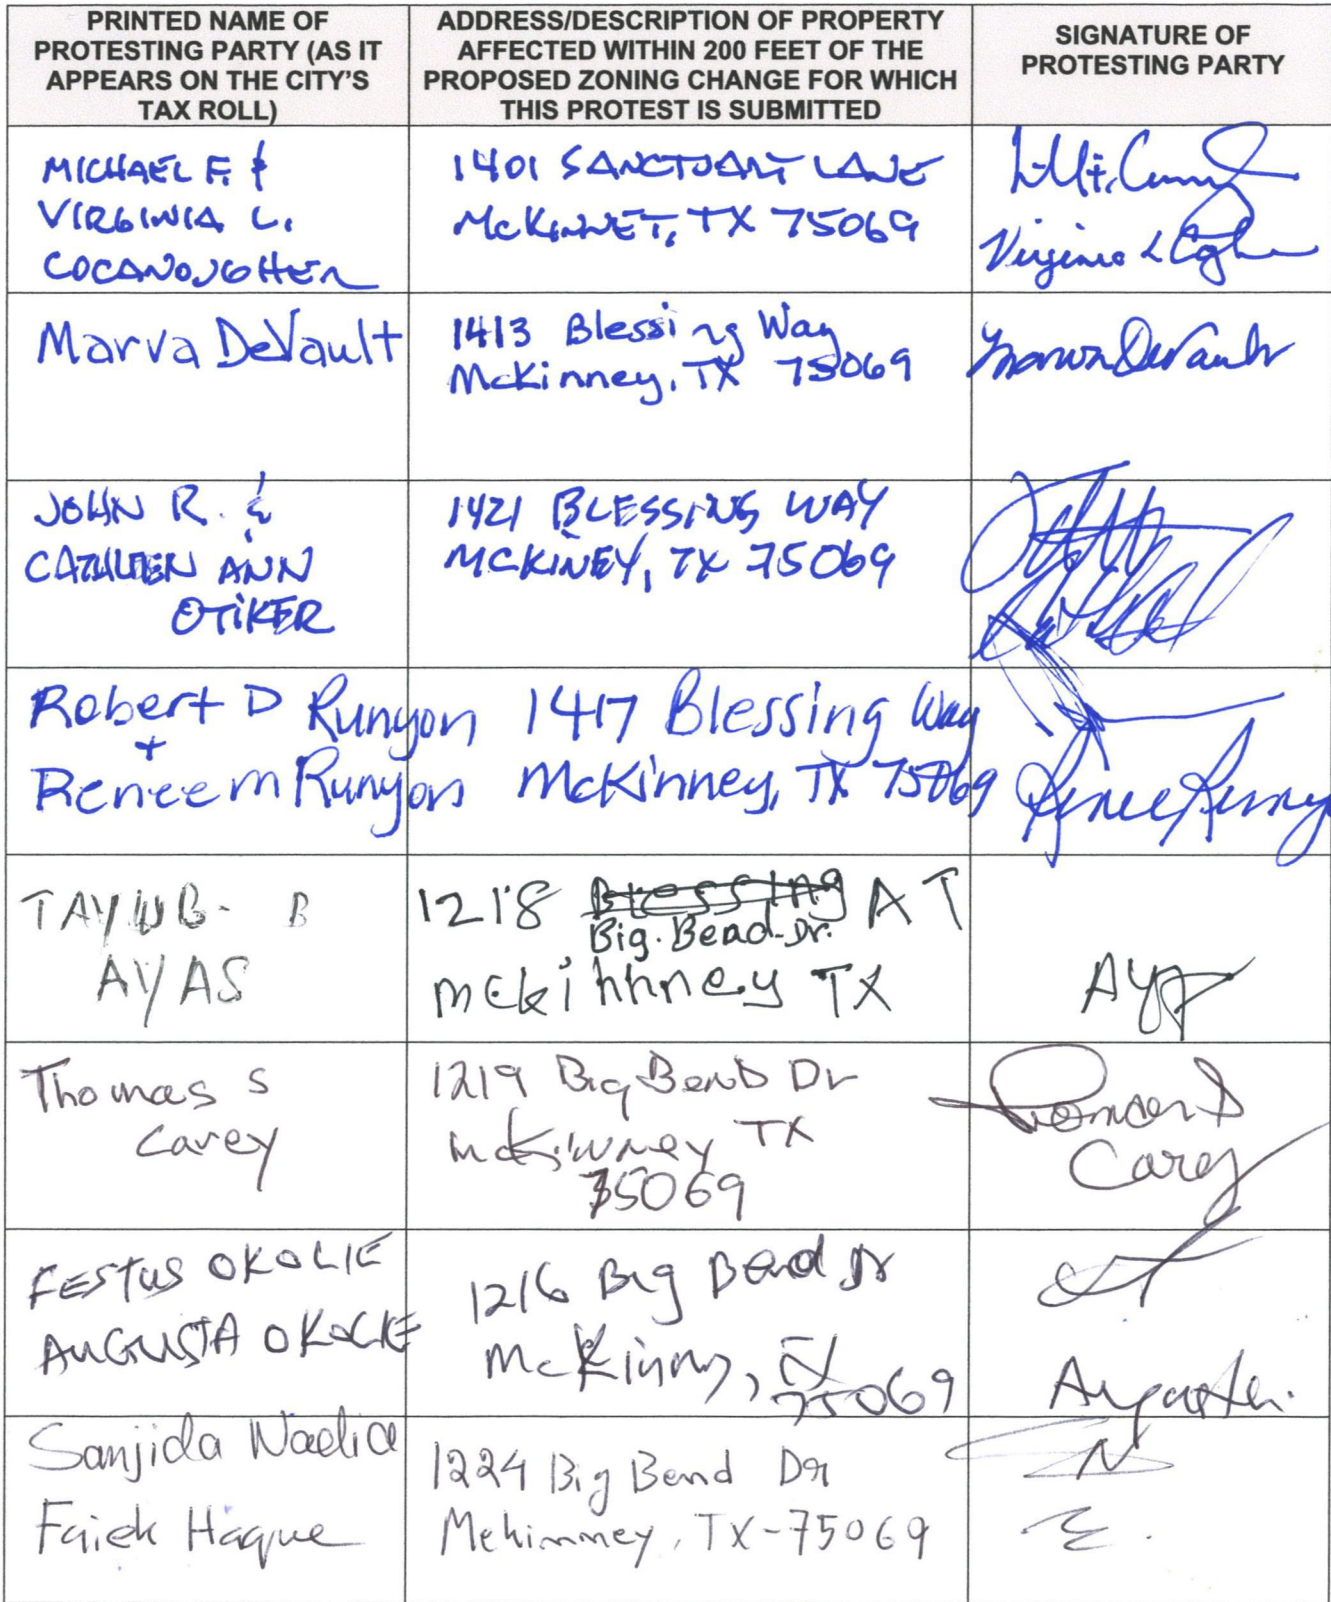 PRINTED NAME OF
PROTESTING PARTY (AS IT
APPEARS ON THE CITY'S
TAX ROLL)
ADDRESS/DESCRIPTION OF PROPERTY
AFFECTED WITHIN 200 FEET OF THE
PROPOSED ZONING CHANGE FOR WHICH
THIS PROTEST IS SUBMITTED
SIGNATURE OF
PROTESTING PARTY
MICHAEL F. &
VIRGINIA L.
COCANOUGHER
1401 SANCTUARY LANE
McKINNEY, TX 75069
Virginia L
Marva DeVault
1413 Blessing Way
McKinney, TX 75069
Marva DeVault
JOHN R. &
CATHLEEN ANN
OTIKER
1421 BLESSING WAY
MCKINEY, TX 75069
Robert D Runyon
+
Renee M Runyon
1417 Blessing Way
McKinney, TX 75069
Renee Runyon
TAYUB- B
AYAS
1218 Blessing A T
Big. Bead-Dr.
mckihnney TX
Thomas S
Carey
1219 Big Bend Dr
McKinney TX
75069
Thomas S
Carey
FESTUS OKOLIE
AUGUSTA OKOLIE
1216 Big Bend Dr
McKinny, TX
75069
Augusta
Sanjida Nadia
Faiek Haque
1224 Big Bend Dr
Mckinney, TX-75069